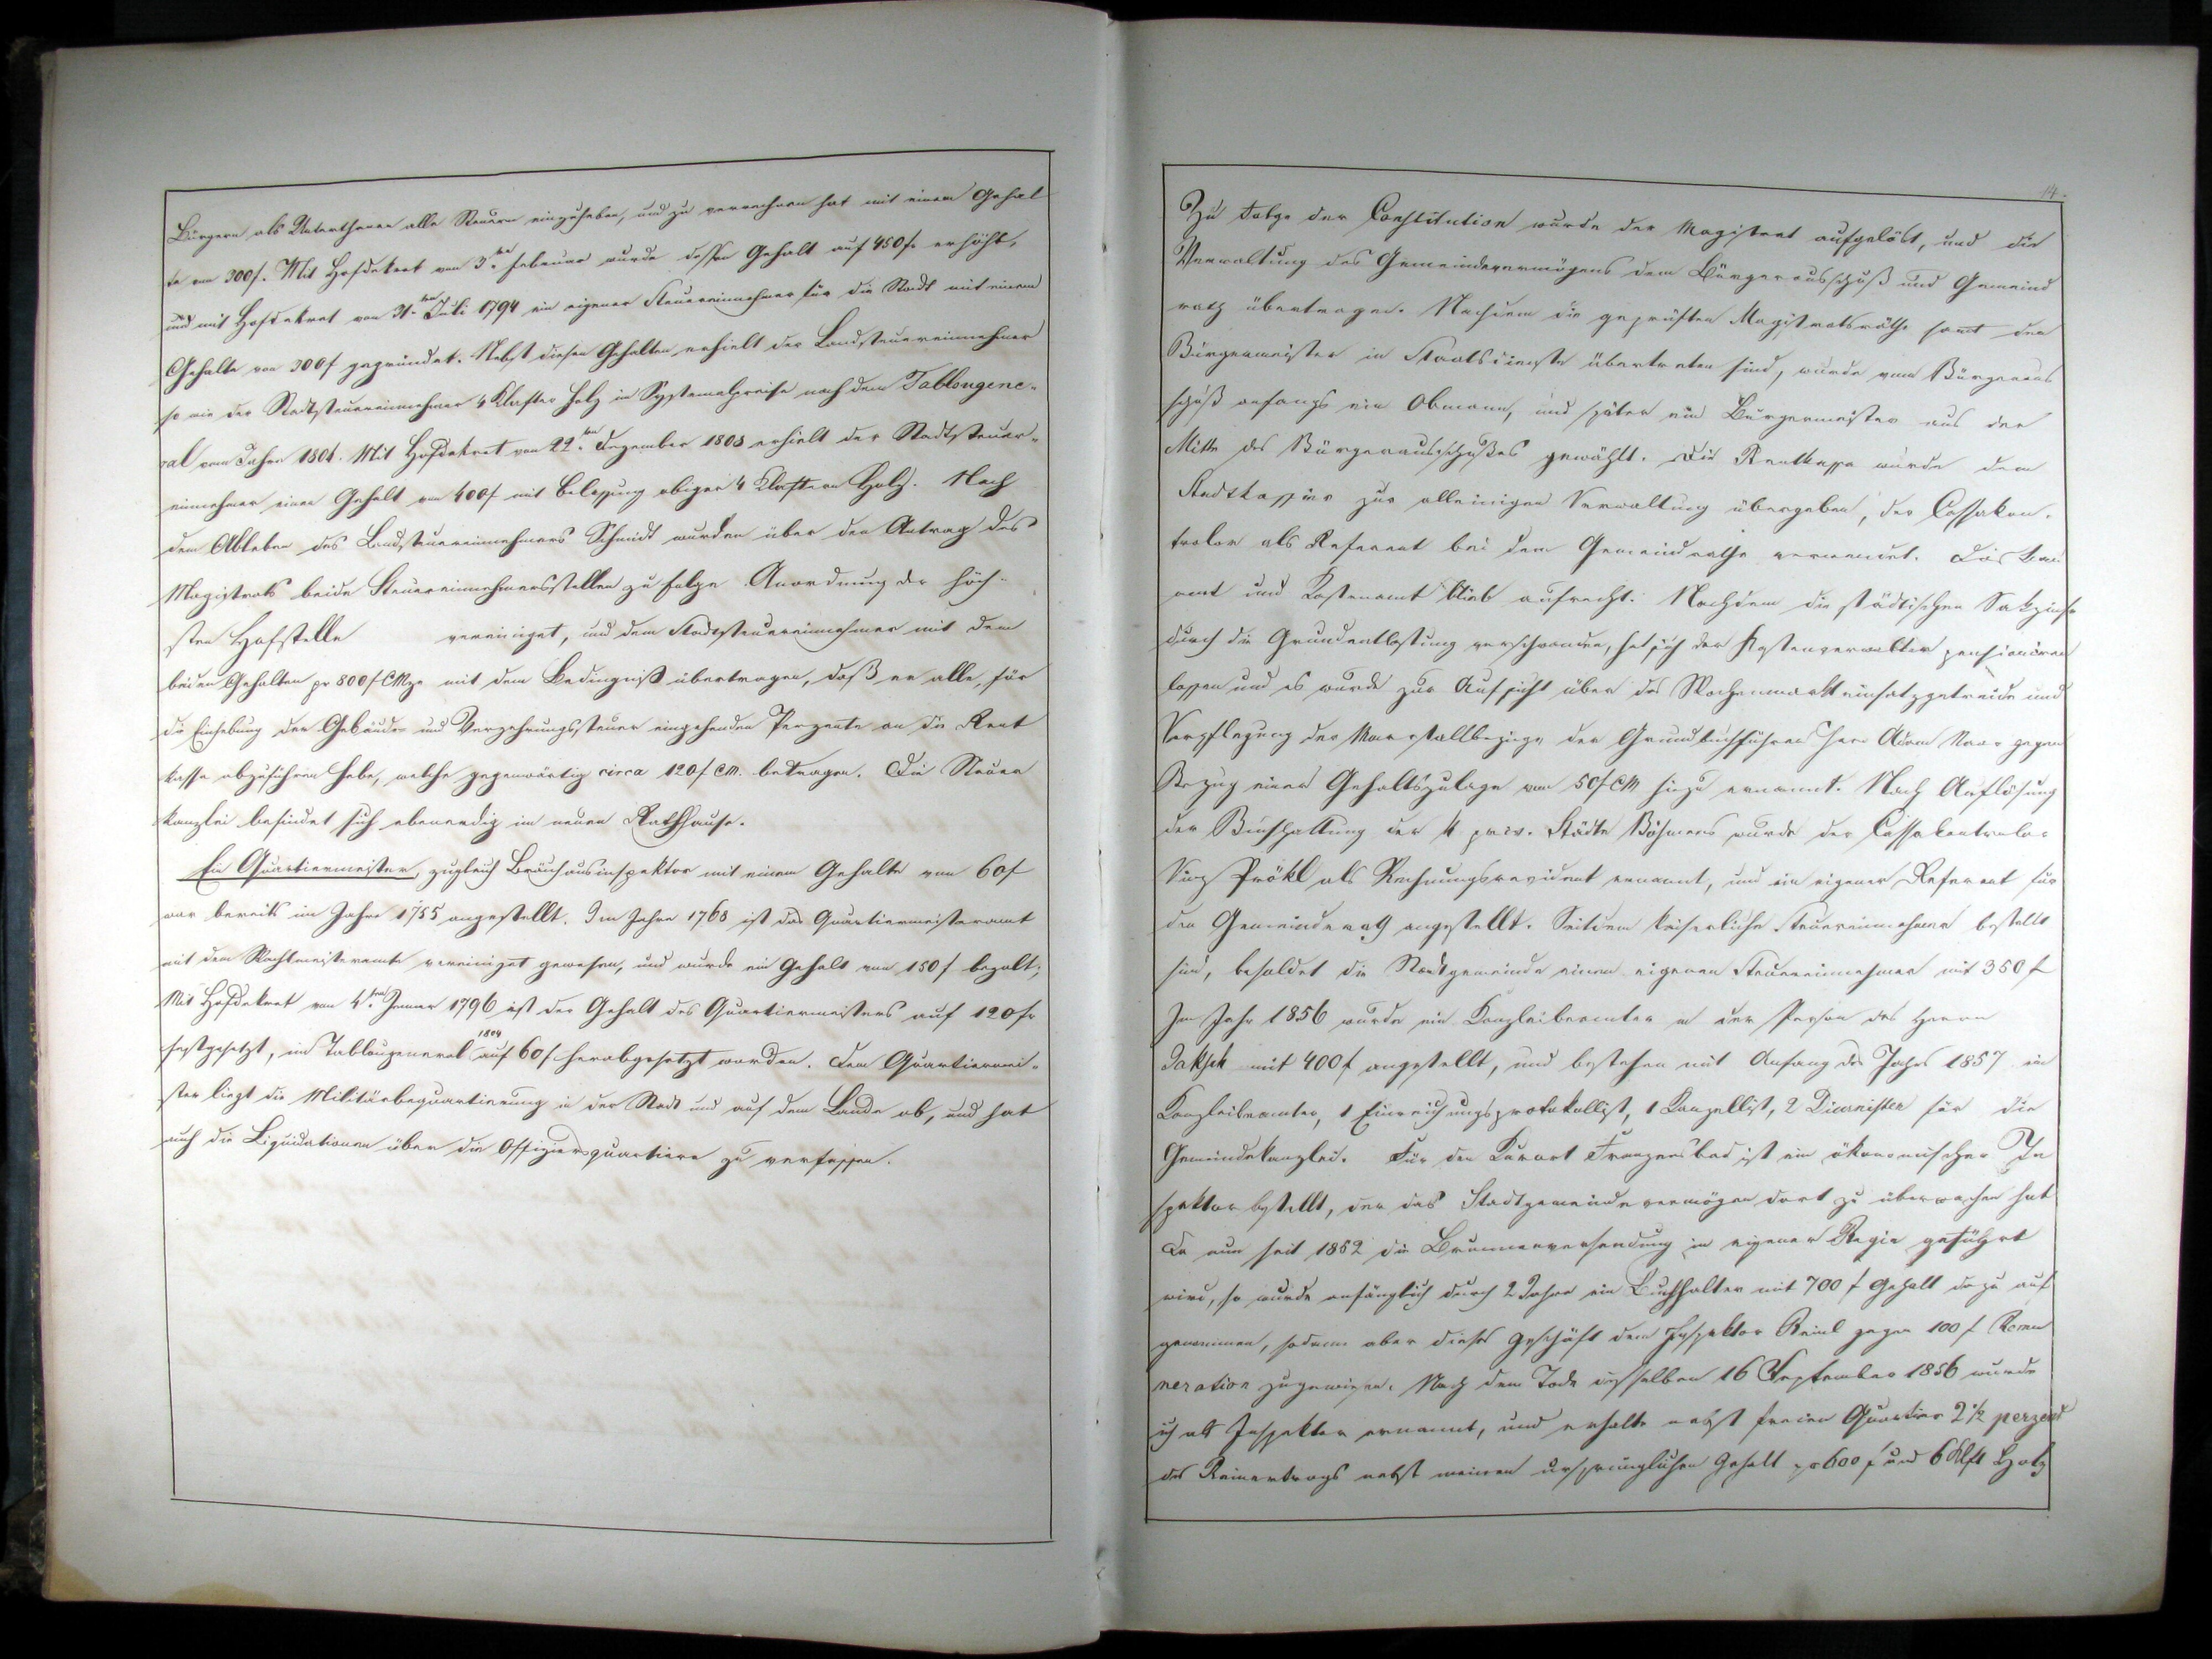 Bürgern als Unterthanen alle Steuern einzuheben, und zu verrechnen hat mit einem Gehal
te von 300 f. Mit Hofdekret von 3ten Februar wurde dessen Gehalt auf 450 f. erhöht,
und mit Hofdekret von 31ten Juli 1794 ein eigener Steuereinnehmer für die Stadt mit einem
Gehalte von 300 f gegründet. Nebst diesen Gehalten erhielt der Landsteuereinnehmer
so wie der Stadtsteuereinnehmer 4 Klafter Holz im Systemalpreise nach dem Tablougene-
ral vom Jahre 1804. Mit Hofdekret von 22ten Dezember 1808 erhielt der Stadtsteuer-
einnehmer einen Gehalt von 400 f mit Belassung obiger 4 Klaftern Holz. Nach
dem Ableben des Landsteuereinnehmers Schmidt wurden über den Antrag des
Magistrats beide Steuereinnehmersstellen zu folge Anordnung der höch-
sten Hofstelle vereiniget, und dem Stadtsteuereinnehmer mit dem
beiden Gehalten pr 800 f CMze mit dem Bedingniß übertragen, daß er alle, für
die Einhebung der Gebäude- und Verzehrungssteuer eingehenden Perzente an die Rent
kasse abzuführen habe, welche gegenwärtig circa 120 f CM. betragen. Die Steuer
kanzlei befindet sich ebenerdig im neuen Rathhause.
Ein Quartiermeister, zugleich Bräuhausinspektor mit einem Gehalte von 60 f
war bereits im Jahre 1755 angestellt. Im Jahre 1768 ist das Quartiermeisteramt
mit dem Wachtmeisteramte vereiniget gewesen, und wurde ein Gehalt von 150 f bezalt;
Mit Hofdekret von 4ten Jänner 1796 ist der Gehalt des Quartiermeisters auf 120 fr
festgesetzt, im Tablougeneral 1804 auf 60 f herabgesetzt worden. Dem Quartiermei-
ster liegt die Militärbequartierung in der Stadt und auf dem Lande ob, und hat
auch die Liquidationen über die Offiziersquartiere zu verfassen.
14.
Zu Folge der Constitution wurde der Magistrat aufgelöst, und die
Verwaltung des Gemeindevermögens dem Bürgerausschuß und Gemeind
rath übertragen. Nachdem die geprüften Magistratsräthe samt dem
Bürgermeister in Staatsdienste übertreten sind, wurde vom Bürgeraus
schuß anfangs ein Obmann, und später ein Bürgermeister aus der
Mitte des Bürgerausschußes gewählt. Die Rentkasse wurde dem
Stadtkassier zur alleinigen Verwaltung übergeben, der Cassakon-
trolor als Referent bei dem Gemeindrathe verwendet. Das Bau
amt und Kastenamt blieb aufrecht. Nachdem die städtischen Sakzinse
durch die Grundentlastung verschwanden, hat sich der Kastenverwalter pensioniren
lassen und es wurde zur Aufsicht über das Wochenmarkteinsatzgetreide und
Verpflegung der Marstallbezüge der Grundbuchführer Herr Adam gegen
Bezug einer Gehaltszulage von 50 f CM hiezu ernannt. Nach Auflösung
der Buchhaltung der k priv. Städte Böhmens wurde der Cassakontrolor
Vinz Prökl als Rechnungsrevident ernannt, und ein eigener Referent für
den Gemeinderath angestellt. Seitdem kaiserliche Steuereinnehmer bestellt
sind, besoldet die Stadtgemeinde einen eigenen Steuereinnehmer mit 350 f
Im Jahr 1856 wurde ein Kanzleibeamter in der Person des Herrn
Jaksch mit 400 f angestellt, und bestehen mit Anfang des Jahres 1857 ein
Kanzleibeamter, 1 Einreichungsprotokollist, 1 Kanzellist, 2 Diurnisten für die
Gemeindekanzlei. Für den Kurort Franzensbad ist ein ökonomischer In
spektor bestellt, der das Stadtgemeindevermögen dort zu überwachen hat
Da nun seit 1852 die Brunnenversendung in eigener Regie geführt
wird, so wurde anfänglich durch 2 Jahre ein Buchhalter mit 700 f Gehalt dazu auf
genommen, sodann aber dieses Geschäft dem Inspektor Reinl gegen 100 f Remu
neration zugewiesen. Nach dem Tode desselben 16 September 1856 wurde
ich als Inspektor ernannt, und erhalte nebst freien Quartier 2 1/2 perzent
des Reinertrags nebst meinen ursprünglichen Gehalt pr 600 f und 6 Klft Holz